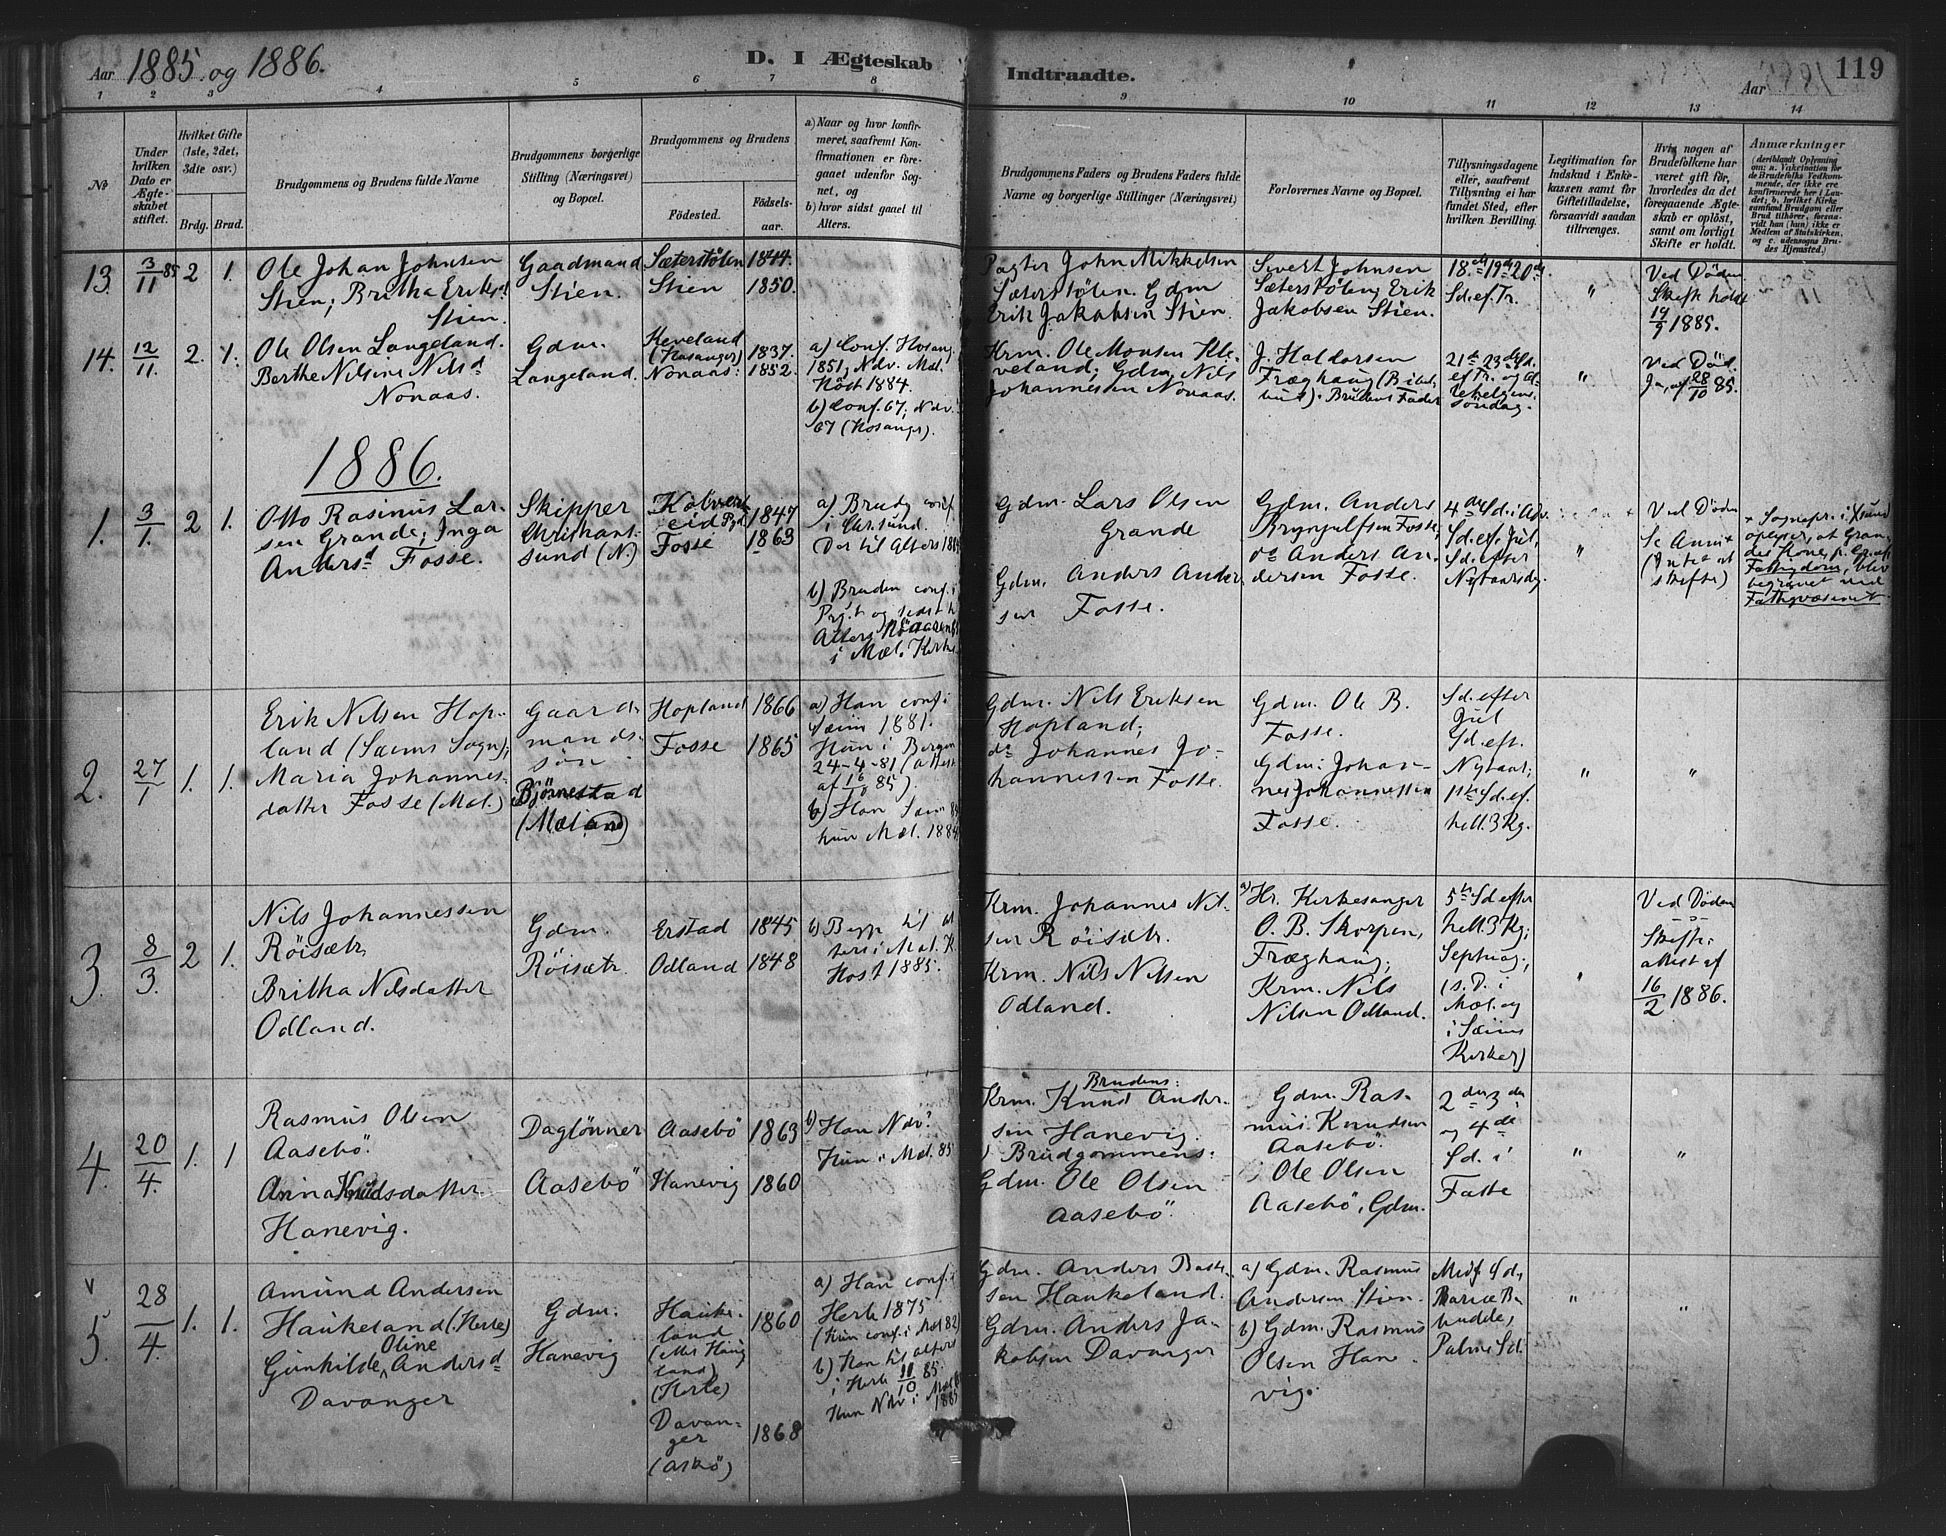 Aar 1885 og 1886.
D. I Ægteskab
Indtraadte.
Aar 1885
119
1 2 3 4 5 6 7 8 9 10 11 12 13 14
No
Under hvilken Dato er Ægteskabet stiftet.
Hvilket Gifte (1ste, 2det, 3die osv.)
Brdg. Brud.
Brudgommens og Brudens fulde Navne
Brudgommens borgerlige Stilling (Næringsvei) og Bopæl.
Brudgommens og Brudens
Fødested.
Fødselsaar.
a) Naar og hvor konfirmeret, saafremt Konfirmationen er foregaaet udenfor Sognet, og
b) hvor sidst gaaet til Alters.
Brudgommens Faders og Brudens Faders fulde Navne og borgerlige Stillinger (Næringsvei)
Forlovernes Navne og Bopæl.
Tillysningsdagene eller, saafremt Tillysning ei har fundet Sted, efter hvilken Bevilling.
Legitimation for Indskud i Enkekassen samt for Giftetilladelse, forsaavidt saadan tiltrænges.
Hvis nogen af Brudefolkene har været gift før, hvorledes da det foregaaende Ægteskab er opløst, samt om lovligt Skifte er holdt.
Anmærkninger
(deriblandt Oplysning om: a. Vakcination for de Brudefolks Vedkommende, der ikke ere konfirmerede her i Landet; b. hvilket Kirkesamfund Brudgom eller Brud tilhører, forsaavidt han (hun) ikke er Medlem af Statskirken, og c. udensogns Brudes Hjemsted.)
13. 3/11 85 2 1.
Ole Johan Johnsen
Stien; Britha Eriksd
Stien.
Gaadmand
Stien.
Sæterstølen 1844.
Stien 1850.
Pagter John Mikkelsen
Sæterstølen. Gdm
Erik Jakobsen Stien.
Sivert Johnsen
Sæterstølen; Erik
Jakobsen Stien.
18de 19de 20de
Sd. ef. Tr.
"
Ved Døden
Skifte holdt
14/9 1885.
14. 12/11. 2. 1.
Ole Olsen Langeland.
Berthe Nilsine Nilsd
Nonaas.
Gdm.
Langeland.
Keveland
(Hosanger) 1837.
Nonaas. 1852.
a) Conf. Hosang.
1851; Ndv. Mæl.
Høst 1884.
b) Conf. 67; Ndv.
67 (Hosanger).
Krm. Ole Monsen Kleveland;
Gdm. Nils
Johannesen Nonaas.
J. Haldorsen
Fræghaug
Brudens Fader
21de 23de Sd.
ef Tr. og Allehelgenssøndag.
"
Ved Død.
28/10 85.
1886.
1. 3/1. 2 1.
Otto Rasmus Larsen
Grande; Inga
Andersd Fosse.
Skipper
Christiansund (N)
Kolvereid Pgd. 1847
Fosse 1863
a) Brudg conf.
i Chr.sund.
Der til Alters
b) Bruden conf. i
Prgt og sidst t.
Alters
i Mæl. Kirke
Gdm. Lars Olsen
Grande
Gdm. Anders Andersen
Fosse.
Gdm. Anders
Brynjulfsen Fosse,
do Anders Andersen
Fosse.
4de Sd. i Adv.
Sd. ef. Jul,
Sd. efter
Nytaarsdg.
"
Ved Døden
(Intet at
skifte)
+ Sognepr. i Xsund
oplyser, at Grandes
Kone, p. Gr. af
Fattigdom, blev
begravet ved
Fattigvæsenet.
2. 27/1 1. 1.
Erik Nilsen Hopland
(Sæims Sogn);
Maria Johannesdatter
Fosse (Mæl.)
Gaardmandssøn
Bjørnestad
(Mæland)
Hopland 1866
Fosse 1865
a) Han conf. i
Sæim 1881.
Hun i Bergen
24-4-81 (attest
af 16/10 85).
b) Han Sæim
hun Mæl. 1884
Gdm. Nils Eriksen
Hopland;
do Johannes Johannessen
Fosse.
Gdm. Ole B.
Fosse.
Gdm. Johannes
Johannessen
Fosse.
Sd. efter
Jul
Sd. ef.
Nytaar;
1ste Sd. ef.
hell. 3 Kg.
"
"
3. 8/3. 2 1.
Nils Johannessen
Röisætr,
Britha Nilsdatter
Odland.
Gdm.
Röisætr.
Erstad 1845
Odland 1848
b) Begge til Alters
i Mæl. K.
Høst 1885.
Krm. Johannes Nilsen
Röisætr.
Krm. Nils Nilsen
Odland.
a) Hr. Kirkesanger
O. B. Skorpen,
Fræghaug;
Krm. Nils
Nilsen Odland.
5te Sd. efter
hell. 3 Kg;
Septuag.,
(s. D. i
Mæl. og
i Sæims
Kirker)
"
Ved Døden
Skifteattest
af
16/2 1886.
4. 20/4. 1. 1
Rasmus Olsen
Aasebö.
Anna Knudsdatter
Hanevig.
Daglönner
Aasebö
Aasebö 1863
Hanevig 1860
b) Han Ndv.
Hun i Mæl. 85
Brudens:
Krm. Knud Andersen
Hanevig.
Brudgommens:
Gdm. Ole Olsen
Aasebö.
Gdm. Rasmus
Knudsen
Aasebö.
Ole Olsen
Aasebö, Gdm.
2den 3die
og 4de
Sd. i
Faste
"
"
v
5. 28/4. 1. 1.
Amund Andersen
Haukeland (Herle)
Gunhilde Oline Andersd
Davanger
Gdm.
Hanevig
Haukeland 1860
(Herle)
Davanger
(Askö) 1868
a) Han conf. i
Herle 1875
(Hun conf. i Mæl 82)
b) Han til alters
i Herle 11/10 85.
Hun Ndv. i Mæl
1885
Gdm. Anders
Haukeland.
Gdm. Anders Jakobsen
Davanger
a) Gdm. Rasmus
Andersen Stien.
b) Gdm. Rasmus
Olsen Hanevig.
Midf. Sd.,
Mariæ Bebudde,
Palme Sd.
"
"